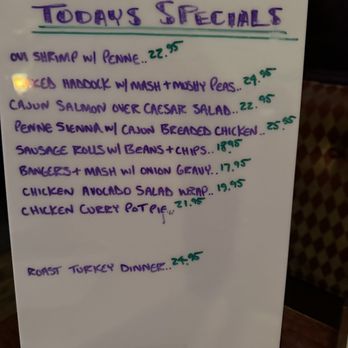 TODAYS SPECIALS
SHRIMP W/ PENNE..22.95
HADDOCK W/ MASH + MUSHY PEAS..24.95
CAJUN SALMON OVER CAESAR SALAD..22.95
PENNE SIENNA W/ CAJUN BREADED CHICKEN..25.95
SAUSAGE ROLLS W/ BEANS + CHIPS..18.95
BANGERS + MASH W/ ONION GRAVY..17.95
CHICKEN AVOCADO SALAD WRAP..19.95
CHICKEN CURRY POT PIE..21.95
ROAST TURKEY DINNER..24.95